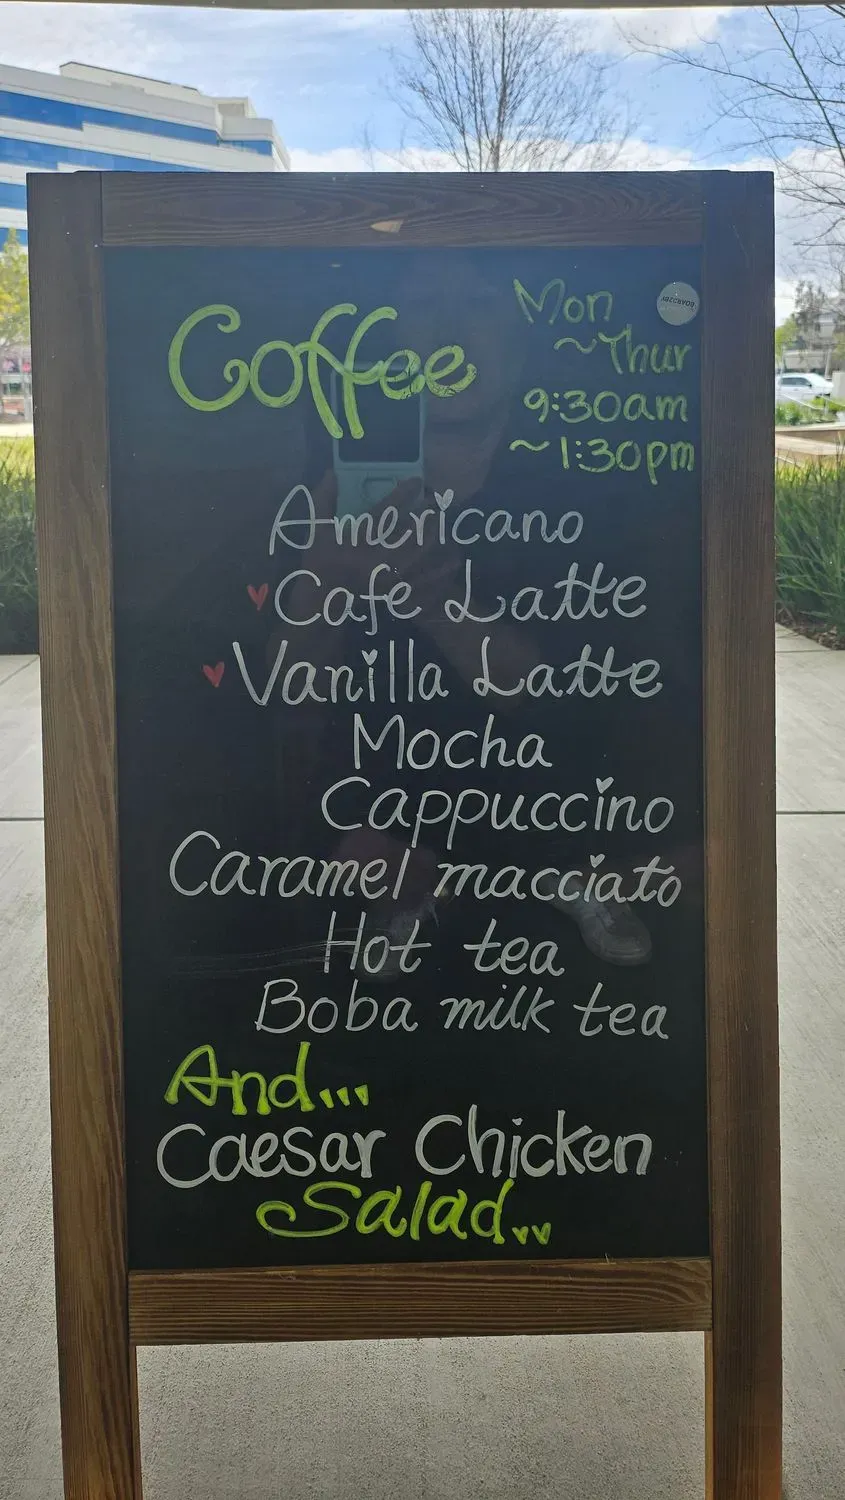 Coffee
Mon
~Thur
9:30am
~1:30pm
Americano
Cafe Latte
Vanilla Latte
Mocha
Cappuccino
Caramel macciato
Hot tea
Boba milk tea
And...
Caesar Chicken
Salad..